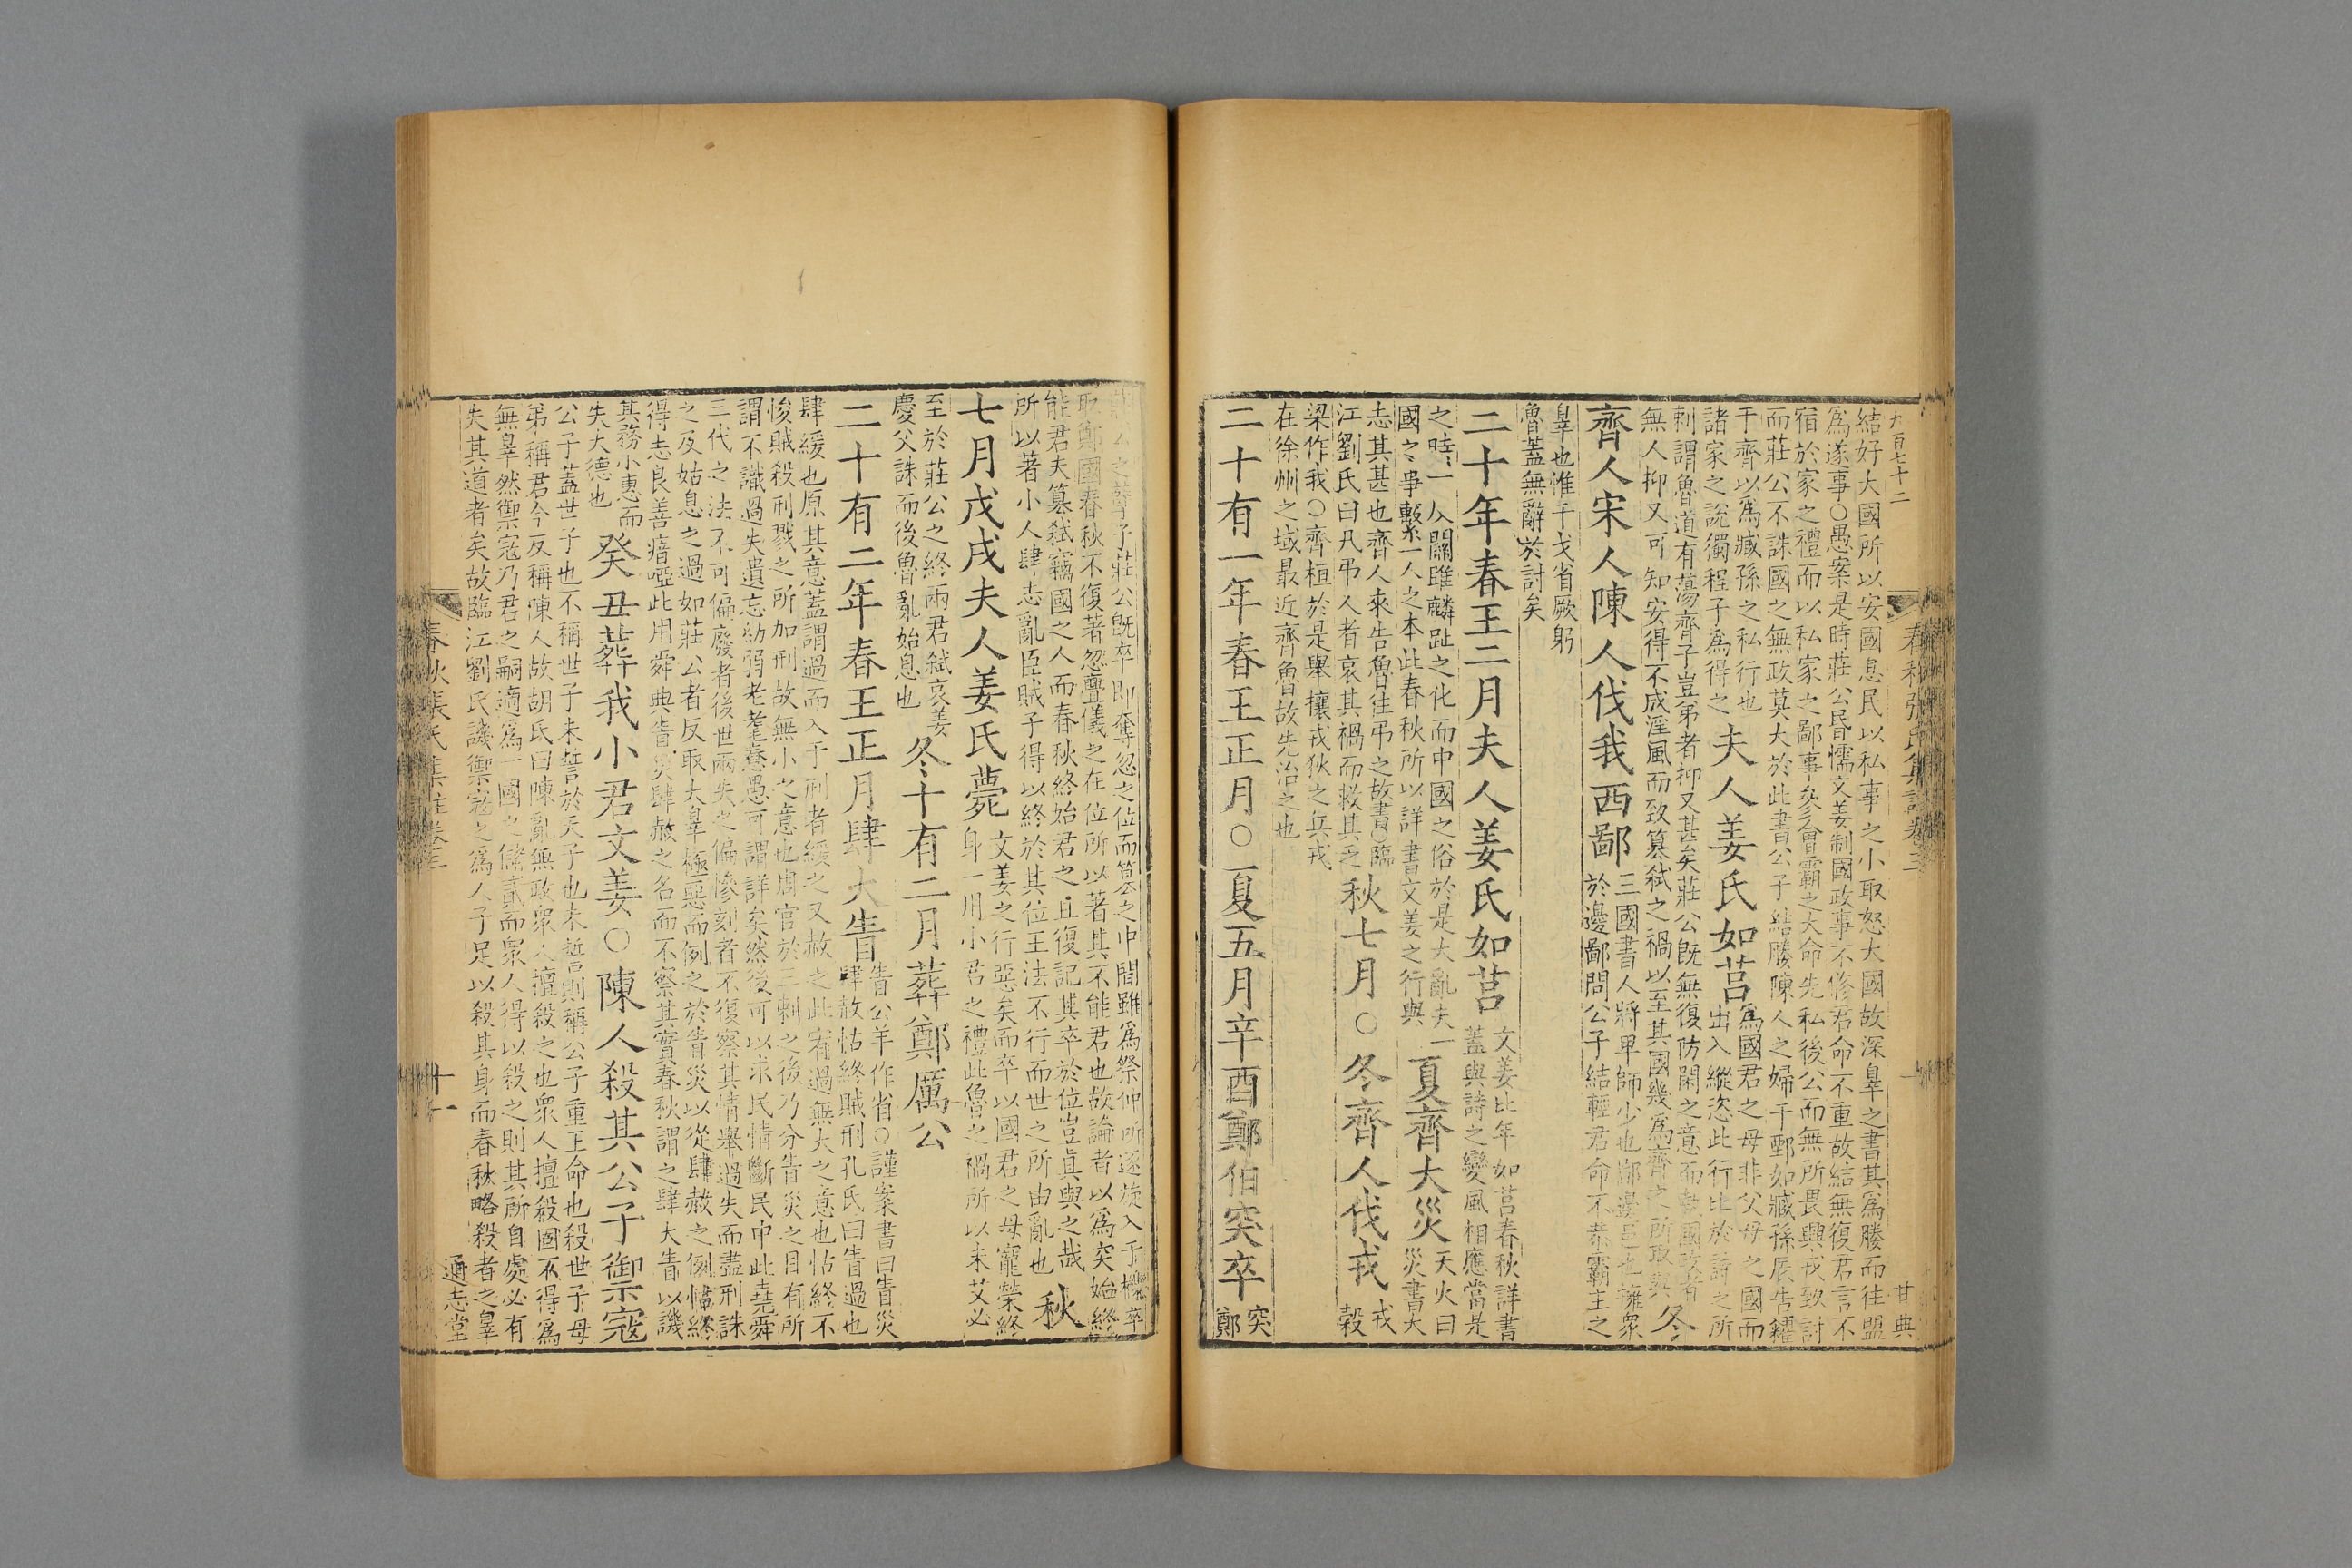 九百七十二
春秋張氏集註卷三
甘典
結好大國所以安國息民以私事之小取怒大國故深辠之書其爲媵而往盟
爲遂事○愚案是時莊公昬懦文姜制國政事不修君命不重故結無復君言不
宿於家之禮而以私家之鄙事參會霸之大命先私後公而無所畏與戎致討
而莊公不誅國之無政莫大於此書公子結媵陳人之婦于鄄如臧孫辰告糴
于齊以爲臧孫之私行也
諸家之說獨程子爲得之
夫人姜氏如莒
爲國君之母非父母之國而
出入縱恣此行比於詩之所
刺謂魯道有蕩齊子豈弟者抑又甚矣莊公旣無復防閑之意而
無人抑又可知安得不成淫風而致篡弑之禍以至其國幾爲齊之所取與
冬
齊人宋人陳人伐我西鄙
三國書人將卑師少也鄙邊邑也擁衆
於邊鄙問公子結輕君命不恭霸主之
辠也惟干戈省厥躬
魯蓋無辭於討矣
二十年春王二月夫人姜氏如莒
文姜比年如莒春秋詳書
蓋與詩之變風相應當是
之時一人關雎麟趾之化而中國之俗於是大亂夫一
國之事繫一人之本此春秋所以詳書文姜之行與
夏齊大災
天火曰
災書大
志其甚也齊人來告魯往弔之故書○臨
江劉氏曰凡弔人者哀其禍而救其乏
秋七月○冬齊人伐戎
戎
穀
梁作我○齊桓於是舉攘戎狄之兵戎
在徐州之域最近齊魯故先治之也
二十有一年春王正月○夏五月辛酉鄭伯突卒
突
鄭
公之孽子莊公旣卒卽奪忽之位而簒之中間雖爲祭仲所逐後入于櫟卒
取鄭國春秋不復著忽亹儀之在位所以著其不能君也故論者以爲突始終
能君夫篡弑竊國之人而春秋終始君之且復記其卒於位豈眞與之哉
所以著小人肆志亂臣賊子得以終於其位王法不行而世之所由亂也
秋
七月戊戌夫人姜氏薨
文姜之行惡矣而卒以國君之母寵榮終
身一用小君之禮此魯之禍所以未艾必
至於莊公之終兩君弑哀姜
慶父誅而後魯亂始息也
冬十有二月葬鄭厲公
二十有二年春王正月肆大眚
眚公羊作省○謹案書曰眚災
肆赦怙終賊刑孔氏曰眚過也
肆緩也原其意蓋謂過而入于刑者緩之又赦之此宥過無大之意也怙終不
悛賊殺刑戮之所加刑故無小之意也周官於三刺之後乃分眚災之目有所
謂不識過失遺忘幼弱老耄惷愚可謂詳矣然後可以求民情斷民中此堯舜
三代之法不可偏廢者後世兩失之偏慘刻者不復察其情舉過失而盡刑誅
之及姑息之過如莊公者反取大辠極惡而例之於眚災以從肆赦之例慉終
得志良善瘖啞此用舜典眚災肆赦之名而不察其實春秋謂之肆大眚以譏
其務小惠而
失大德也
癸丑葬我小君文姜○陳人殺其公子御宼
公子蓋世子也不稱世子未誓於天子也未誓則稱公子重王命也殺世子母
弟稱君今反稱陳人故胡氏曰陳亂無政衆人擅殺之也衆人擅殺國不得爲
無辠然禦寇乃君之嗣適爲一國之儲貳而衆人得以殺之則其所自處必有
失其道者矣故臨江劉氏譏禦寇之爲人子足以殺其身而春秋略殺者之辠
春秋張氏集註卷三
十一
通志堂